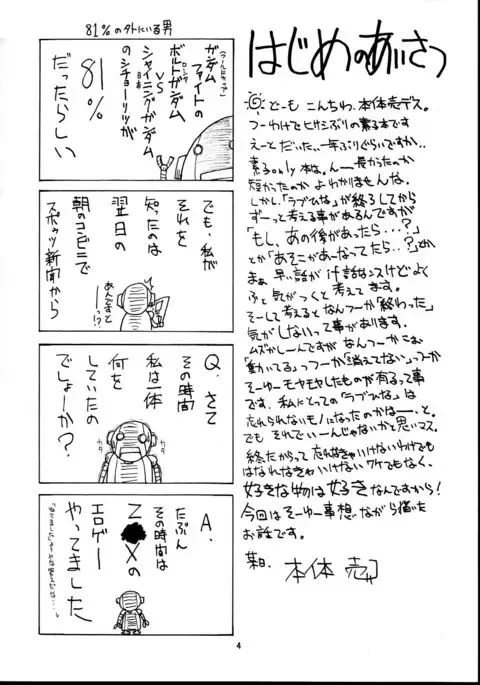 81%のタトにいる男
ガダム
ファイトの
(ワールドカップ)
ボルドガンダム
ロシア
VS
シャイニングガンダム
日本
のシチョーリツが
81%
だったらしい
でも、私が
それを
知ったのは
翌日の
朝のコンビニで
スポーツ新聞から
あんですとーっ!?
Q. さて
その時間
私は一体
何を
していたの
でしょーか?
カタ
カタ
A.
たぶん
その時間は
Z●Xの
エロゲー
やってました
はじめのあいさつ
どーも こんちわ、本体売デス。
つーわけでヒサシぶりの素子本です
えーとだいたい一年ぶりぐらいですか..
素子only本は。んー長かったのか
短かったのか よくわかりませんな。
しかし、「ラブひな」が終ってしてから
ずーっと考える事があるんですが
「もし、あの後があったら...?」とか
とか「あそこがあーなってたら..?」
まぁ 早い話が IF話なンスけどよく
ふと気がつくと考えてます。
そーして考えるとなんつーか「終わった」
気がしないって事があります。
ムズかしーんですが なんつーか こぉ、
「動いてる」っつーか「消えてない」っつーか
そーゆーモヤモヤしたものが有るって事
です、私にとっての「ラブひな」は
忘れられないモノになったのかなー、と。
でも それでいーんじゃないかと思いマス。
終たからって忘れなきゃいけないわけでも
はなれなきゃいけないワケでもなく、
好きな物は好きなんですから!
今回はそーゆー事想いながら描いた
お話です。
某日. 本体 売
4